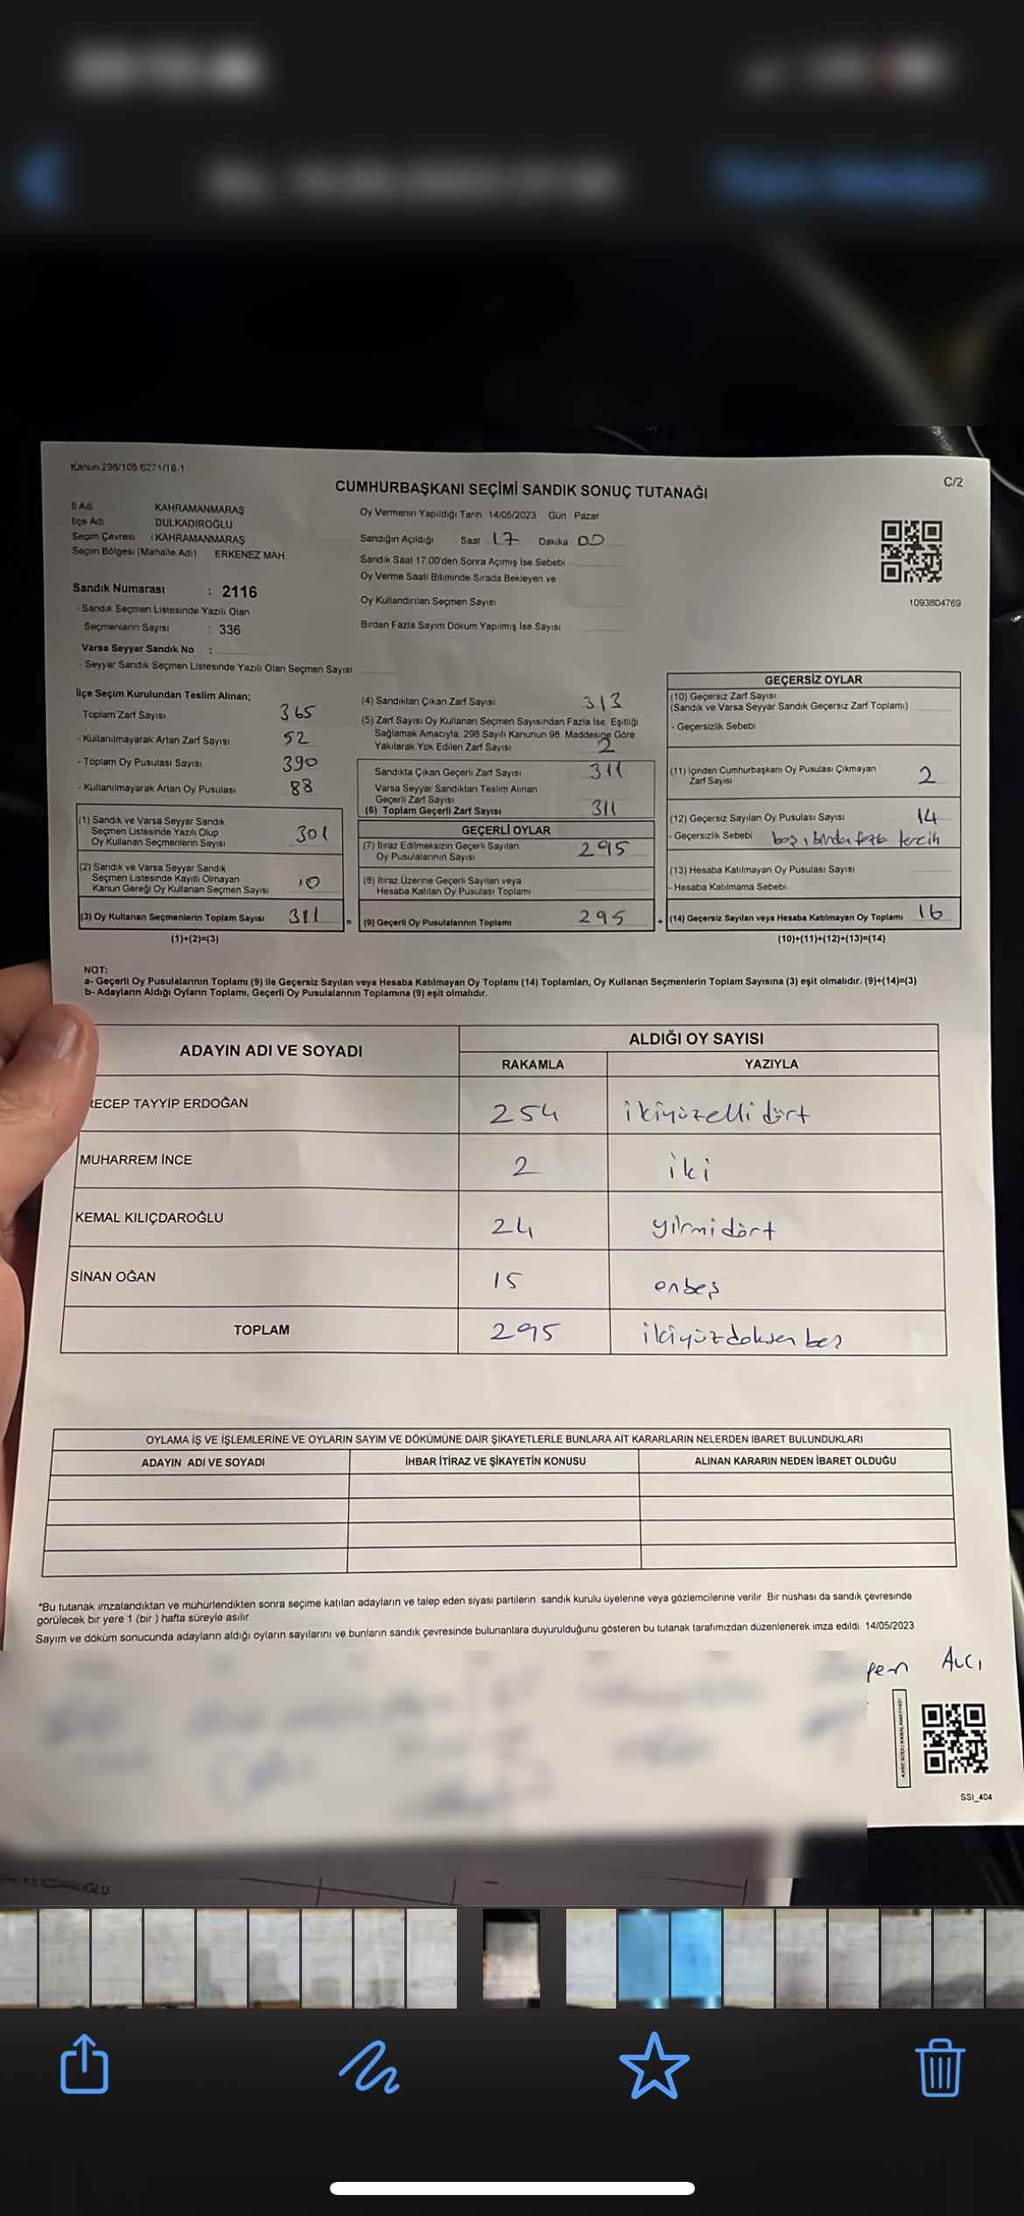 Kanun 298/105 6271/18-1
C/2
CUMHURBAŞKANI SEÇİMİ SANDIK SONUÇ TUTANAĞI
İl Adı KAHRAMANMARAŞ
İlçe Adı DULKADİROĞLU
Seçim Çevresi : KAHRAMANMARAŞ
Seçim Bölgesi (Mahalle Adı) ERKENEZ MAH
Sandık Numarası : 2116
- Sandık Seçmen Listesinde Yazılı Olan
Seçmenlerin Sayısı : 336
Varsa Seyyar Sandık No :
- Seyyar Sandık Seçmen Listesinde Yazılı Olan Seçmen Sayısı
Oy Vermenin Yapıldığı Tarih 14/05/2023 Gün Pazar
Sandığın Açıldığı Saat 17 Dakika 00
Sandık Saat 17:00'den Sonra Açımış İse Sebebi
Oy Verme Saati Bitiminde Sırada Bekleyen ve
Oy Kullandırılan Seçmen Sayısı
Birden Fazla Sayım Döküm Yapılmış İse Sayısı
1093804769
İlçe Seçim Kurulundan Teslim Alınan;
- Toplam Zarf Sayısı 365
- Kullanılmayarak Artan Zarf Sayısı 52
- Toplam Oy Pusulası Sayısı 390
- Kullanılmayarak Artan Oy Pusulası 88
(1) Sandık ve Varsa Seyyar Sandık
Seçmen Listesinde Yazılı Olup
Oy Kullanan Seçmenlerin Sayısı 301
(2) Sandık ve Varsa Seyyar Sandık
Seçmen Listesinde Kayıtlı Olmayan
Kanun Gereği Oy Kullanan Seçmen Sayısı 10
(3) Oy Kullanan Seçmenlerin Toplam Sayısı 311
(1)+(2)=(3)
(4) Sandıktan Çıkan Zarf Sayısı 313
(5) Zarf Sayısı Oy Kullanan Seçmen Sayısından Fazla İse, Eşitliği
Sağlamak Amacıyla, 298 Sayılı Kanunun 98. Maddesine Göre
Yakılarak Yok Edilen Zarf Sayısı 2
Sandıkta Çıkan Geçerli Zarf Sayısı 311
Varsa Seyyar Sandıktan Teslim Alınan
Geçerli Zarf Sayısı
(6) Toplam Geçerli Zarf Sayısı 311
GEÇERLİ OYLAR
(7) İtiraz Edilmeksizin Geçerli Sayılan
Oy Pusulalarının Sayısı 295
(8) İtiraz Üzerine Geçerli Sayılan veya
Hesaba Katılan Oy Pusulası Toplamı
= (9) Geçerli Oy Pusulalarının Toplamı 295
GEÇERSİZ OYLAR
(10) Geçersiz Zarf Sayısı
(Sandık ve Varsa Seyyar Sandık Geçersiz Zarf Toplamı)
- Geçersizlik Sebebi
(11) İçinden Cumhurbaşkanı Oy Pusulası Çıkmayan
Zarf Sayısı 2
(12) Geçersiz Sayılan Oy Pusulası Sayısı 14
- Geçersizlik Sebebi boş, birden fazla tercih
(13) Hesaba Katılmayan Oy Pusulası Sayısı
- Hesaba Katılmama Sebebi
+ (14) Geçersiz Sayılan veya Hesaba Katılmayan Oy Toplamı 16
(10)+(11)+(12)+(13)=(14)
NOT:
a- Geçerli Oy Pusulalarının Toplamı (9) ile Geçersiz Sayılan veya Hesaba Katılmayan Oy Toplamı (14) Toplamları, Oy Kullanan Seçmenlerin Toplam Sayısına (3) eşit olmalıdır. (9)+(14)=(3)
b- Adayların Aldığı Oyların Toplamı, Geçerli Oy Pusulalarının Toplamına (9) eşit olmalıdır.
ADAYIN ADI VE SOYADI
ALDIĞI OY SAYISI
RAKAMLA YAZIYLA
RECEP TAYYİP ERDOĞAN 254 ikiyüzelli dört
MUHARREM İNCE 2 iki
KEMAL KILIÇDAROĞLU 24 yirmidört
SİNAN OĞAN 15 onbeş
TOPLAM 295 ikiyüzdoksan beş
OYLAMA İŞ VE İŞLEMLERİNE VE OYLARIN SAYIM VE DÖKÜMÜNE DAİR ŞİKAYETLERLE BUNLARA AİT KARARLARIN NELERDEN İBARET BULUNDUKLARI
ADAYIN ADI VE SOYADI İHBAR İTİRAZ VE ŞİKAYETİN KONUSU ALINAN KARARIN NEDEN İBARET OLDUĞU
*Bu tutanak imzalandıktan ve mühürlendikten sonra seçime katılan adayların ve talep eden siyasi partilerin sandık kurulu üyelerine veya gözlemcilerine verilir. Bir nüshası da sandık çevresinde
görülecek bir yere 1 (bir ) hafta süreyle asılır.
Sayım ve döküm sonucunda adayların aldığı oyların sayılarını ve bunların sandık çevresinde bulunanlara duyurulduğunu gösteren bu tutanak tarafımızdan düzenlenerek imza edildi. 14/05/2023
Avcı
SSI_404